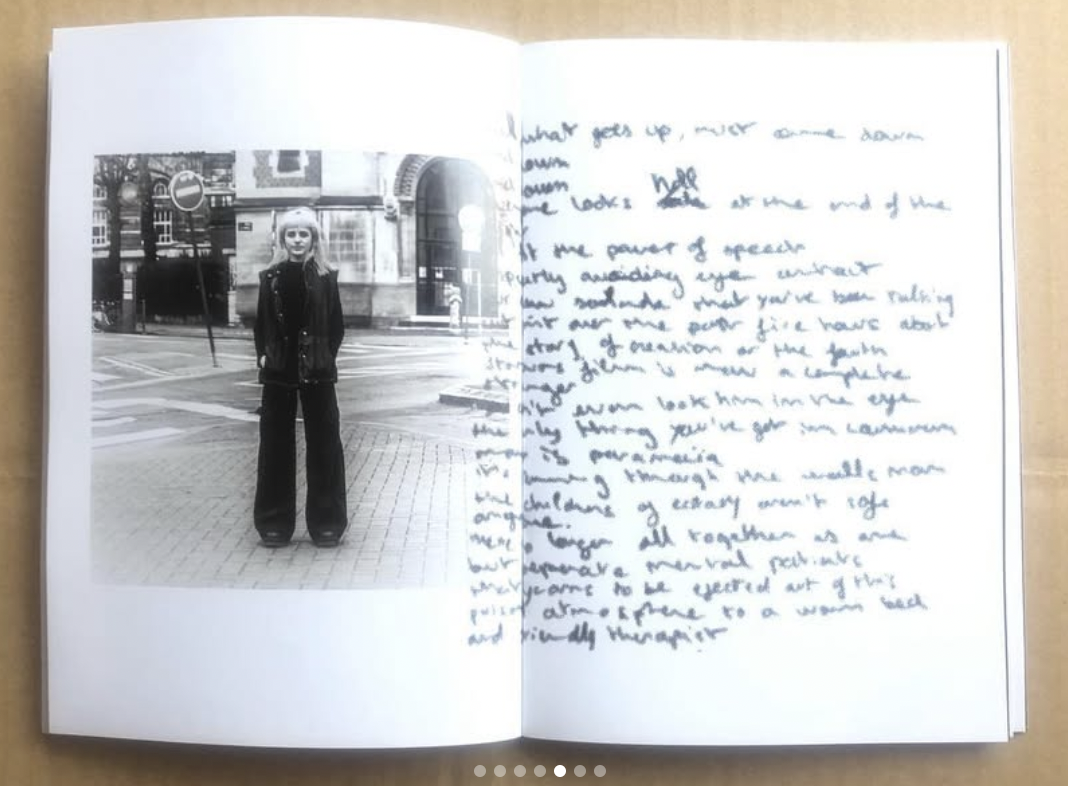 what goes up, must come down
down
down
looks hell at the end of the
the power of speech
avoiding eye contact
that you've been talking
over the past five hours about
the story of creation or the faith
film is now a complete
stranger
even look him in the eye
the only thing you've got in common
now is paranoia
it's coming through the walls man
the children of ecstasy aren't safe
anymore.
no longer all together as one
but separate mental patients
that yearns to be ejected out of this
prison atmosphere to a warm bed
and friendly therapist